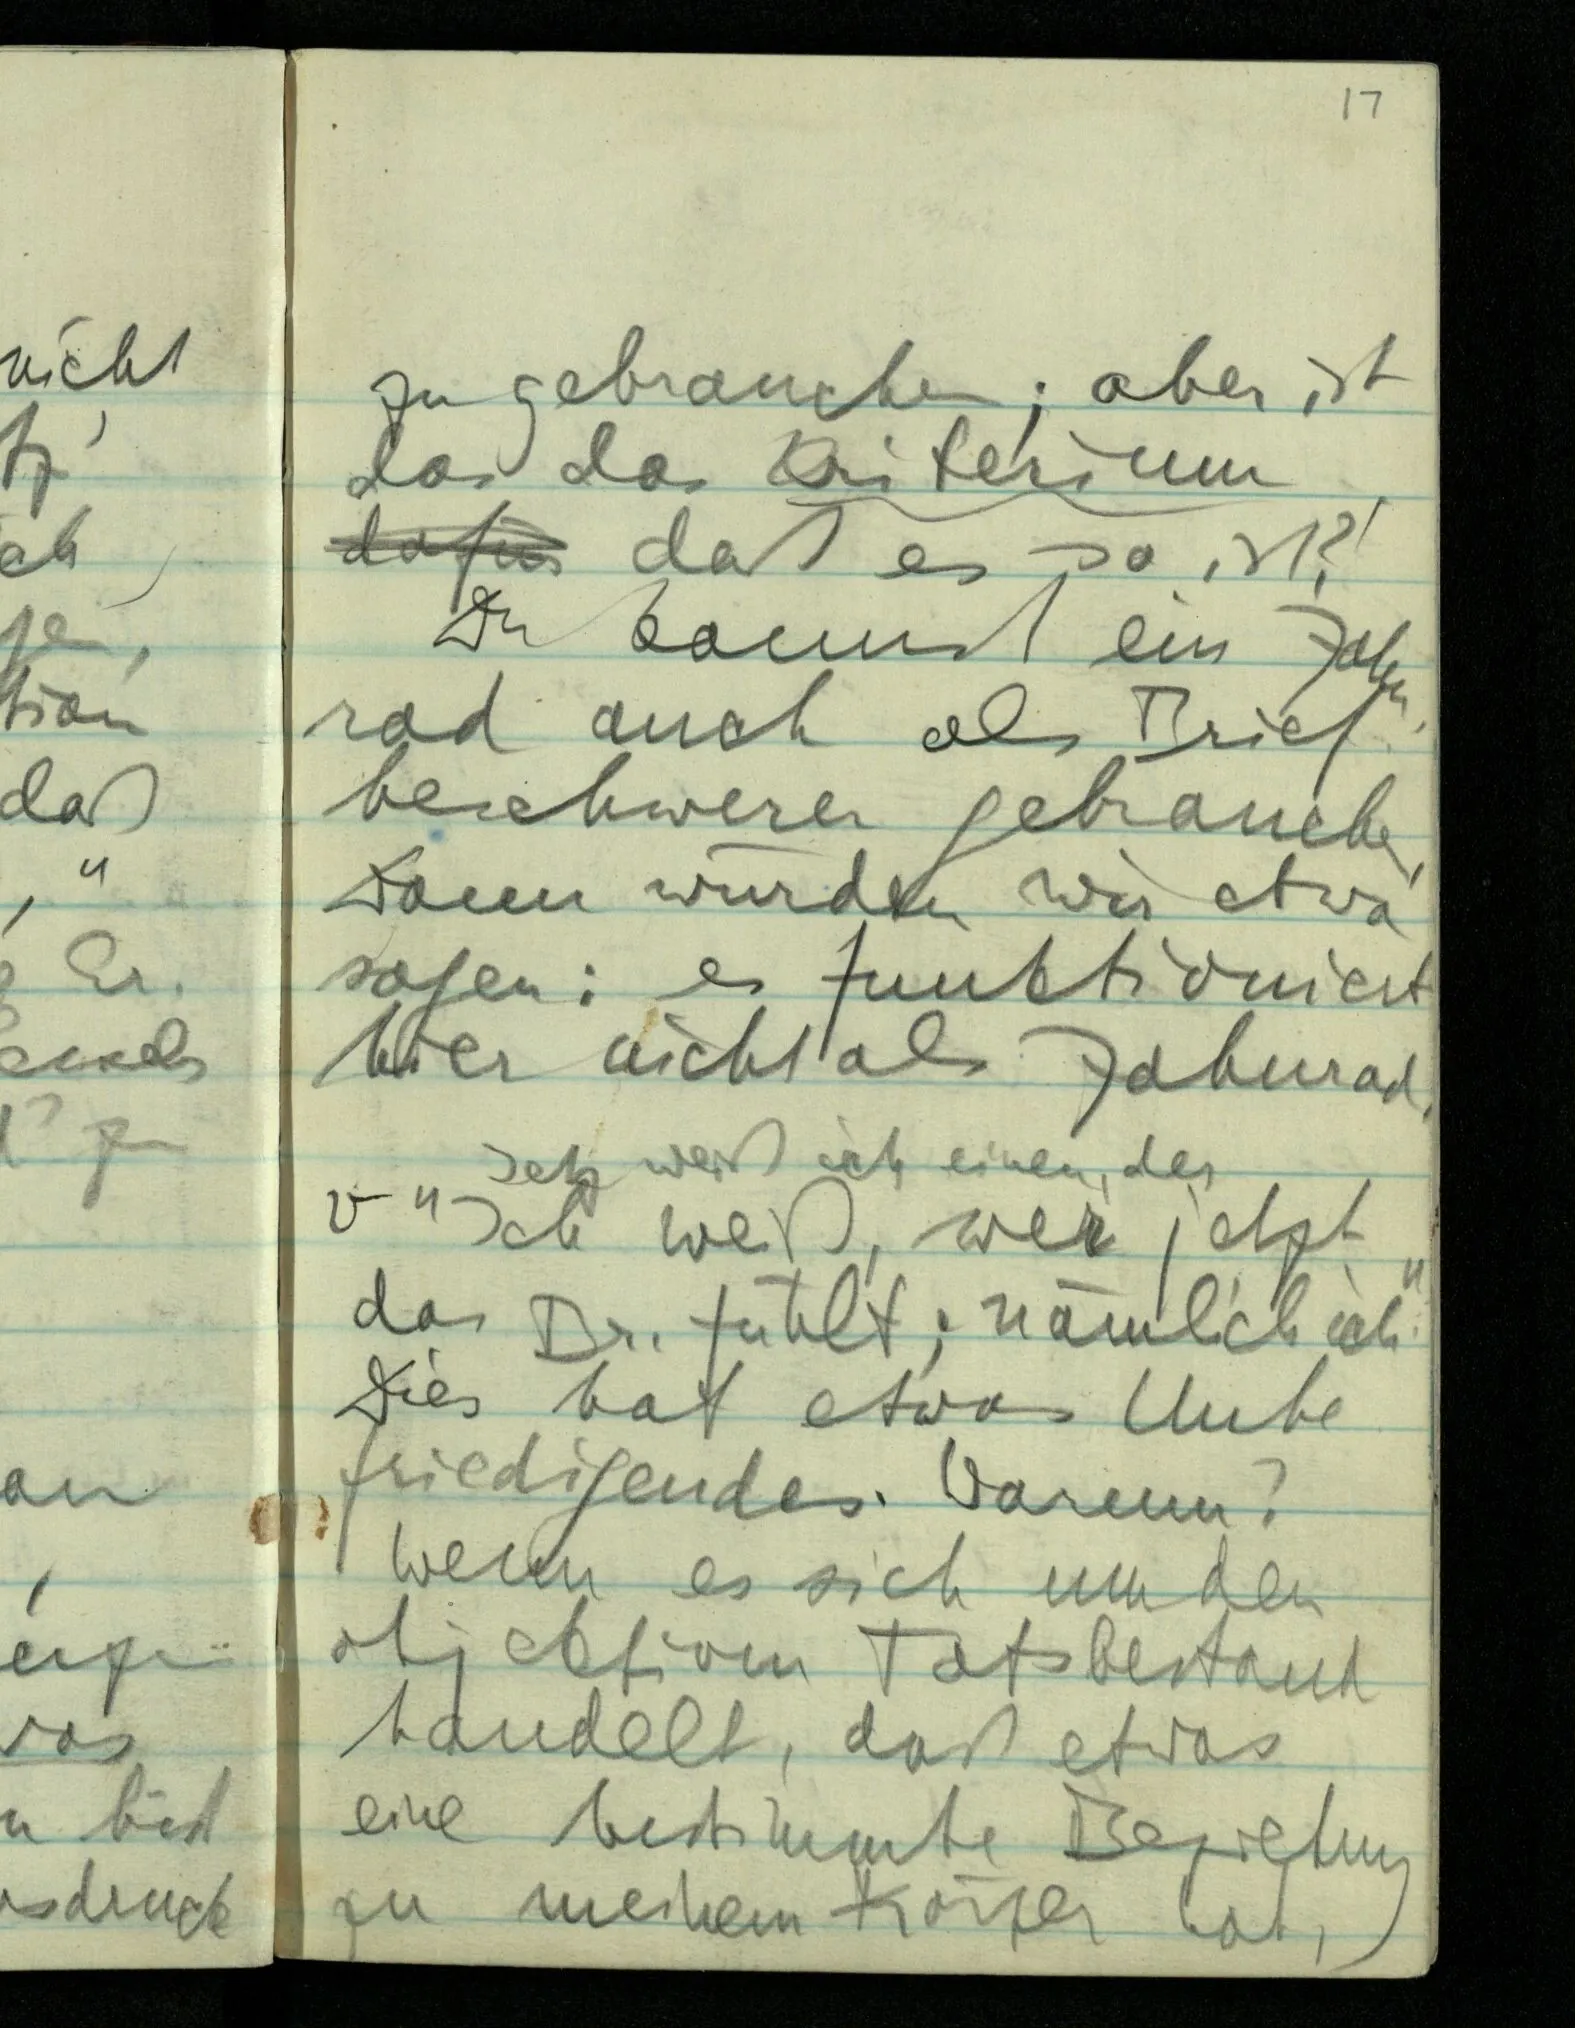 17
zu gebrauchen; aber ist
das das Kriterium
dafür daß es so ist?!
Du kannst ein Zahn-
rad auch als Brief-
beschwerer gebrauchen,
Dann würden wir etwa
sagen: es funktioniert
hier nicht als Zahnrad.
Jetz weiß ich einen, der
v "Ich weiß, wer jetzt
das Br. fühlt; nämlich ich".
Dies hat etwas Unbe
friedigendes. Warum?
Wenn es sich um den
objektiven Tatsbestand
handelt, daß etwas
eine bestimmte Beziehung
zu meinem Körper hat,
nicht
ich
tion
daß
"
Er.
zu
was
bist
sdruck